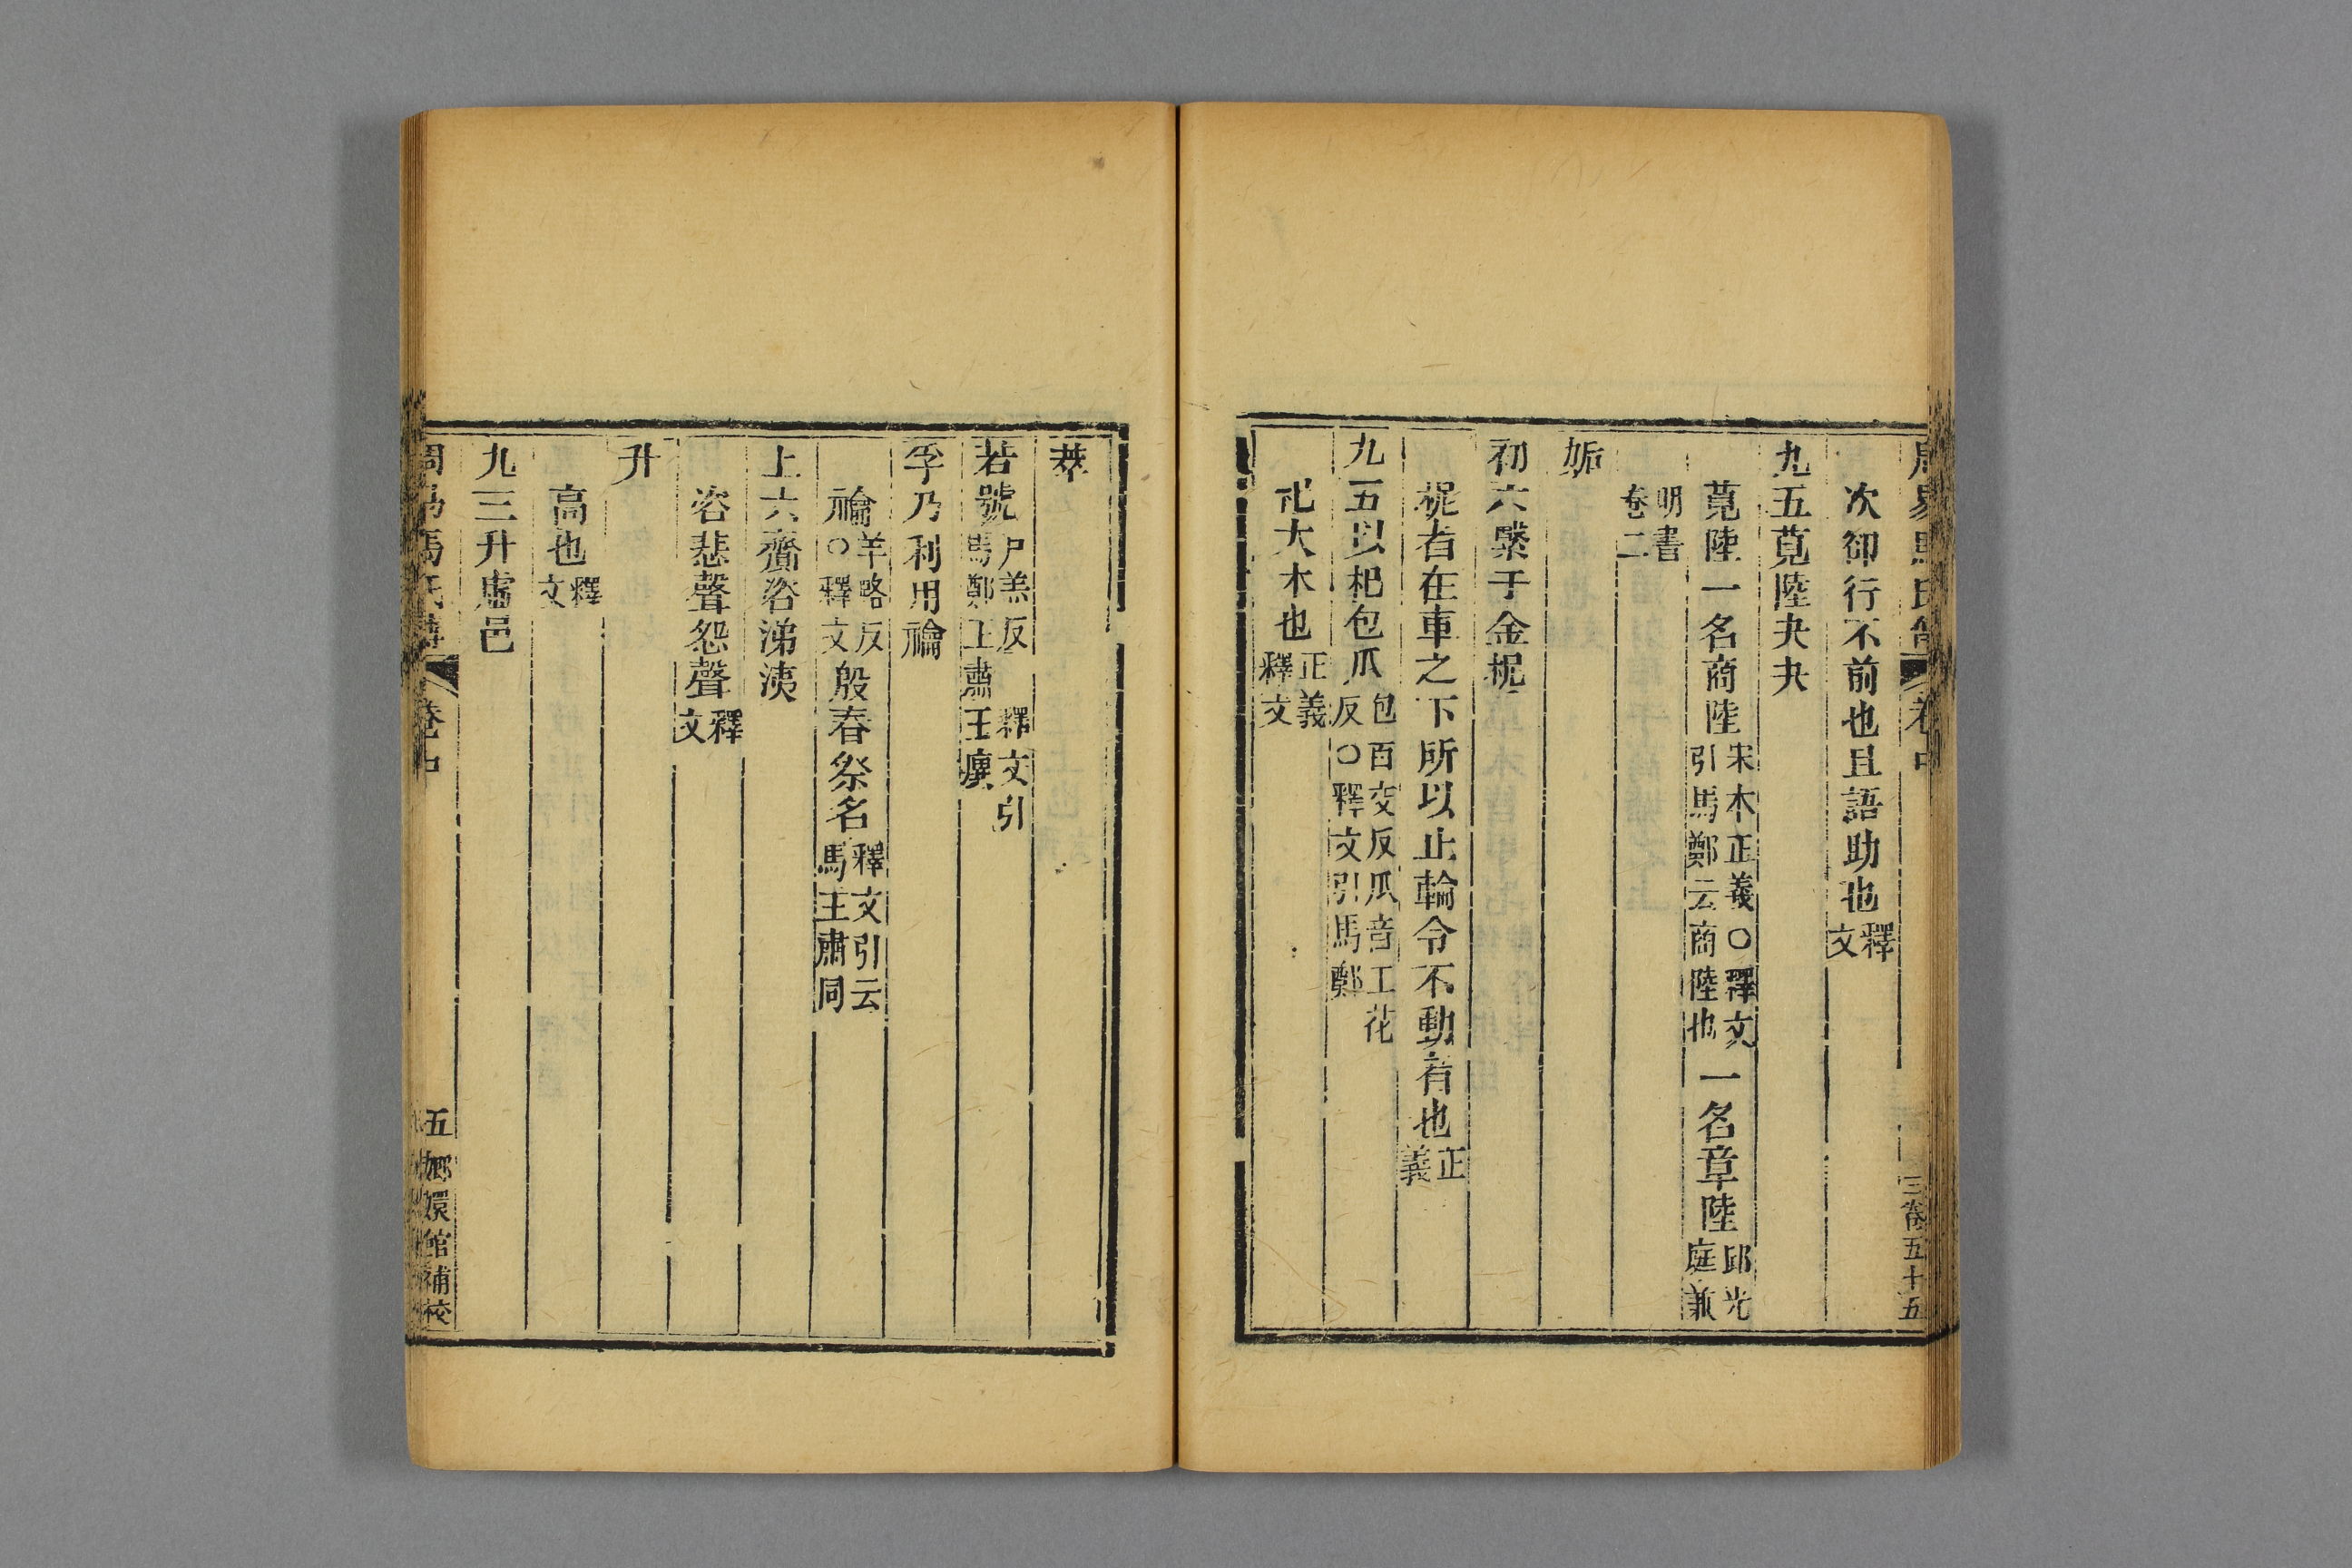 周易馬氏傳 卷中 三卷五十五
次卻行不前也且語助也釋文
九五莧陸夬夬
莧陸一名商陸宋木正義○釋文引馬鄭云商陸也一名章陸邱光庭兼
明書卷二
姤
初六繫于金柅
柅者在車之下所以止輪令不動者也正義
九五以杞包瓜包百交反瓜音工花反○釋文引馬鄭
杞大木也正義釋文
萃
若號尸羔反釋文引馬鄭王肅王廙
孚乃利用禴
禴羊略反○釋文殷春祭名釋文引云馬王肅同
上六齎咨涕洟
咨悲聲怨聲釋文
升
高也釋文
九三升虛邑
周易馬氏傳 卷中 五 嫏嬛館補校